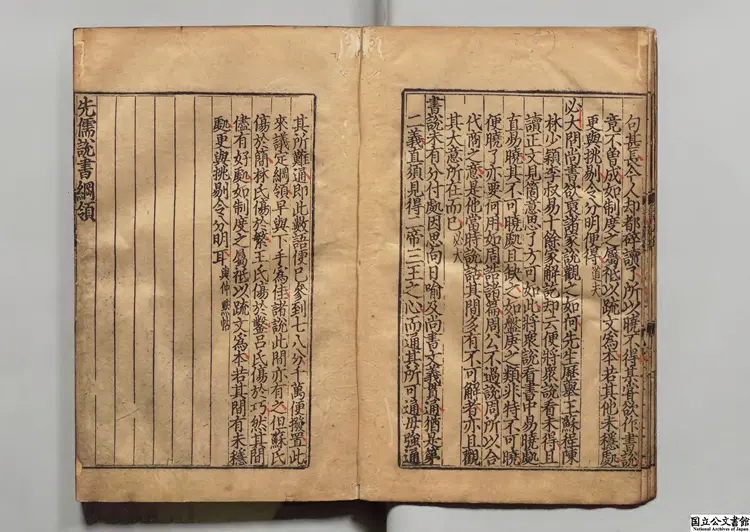 句甚長今人却都碎讀了所以曉不得某嘗欲作書說
竟不曾成如制度之屬秪以疏文爲本若其他未穩處
更與挑剔令分明便得道夫
必大問尚書欲裒諸家說觀之如何先生歷舉王蘇程陳
林少穎李叔易十餘家解訖却云便將衆說看未得且
讀正文見箇意思了方可如此將衆說看書中易曉處
直易曉其不可曉處且闕之如盤庚之類非特不可曉
便曉了亦要何用如周誥諸篇周公不過說周所以合
代商之意是他當時說話其間多有不可解者亦且觀
其大意所在而已必大
書說未有分付處因思向日喻及尚書文義貫通猶是第
二義直須見得二帝三王之心而通其所可通毋強通
其所難通即此數語便已參到七八分千萬便撥置此
來議定綱領早與下手爲佳諸說此間亦有之但蘇氏
傷於簡林氏傷於繁王氏傷於鑿呂氏傷於巧然其間
儘有好處如制度之屬秪以疏文爲本若其間有未穩
處更與挑剔令分明耳與仲默帖
先儒說書綱領
国立公文書館
National Archives of Japan